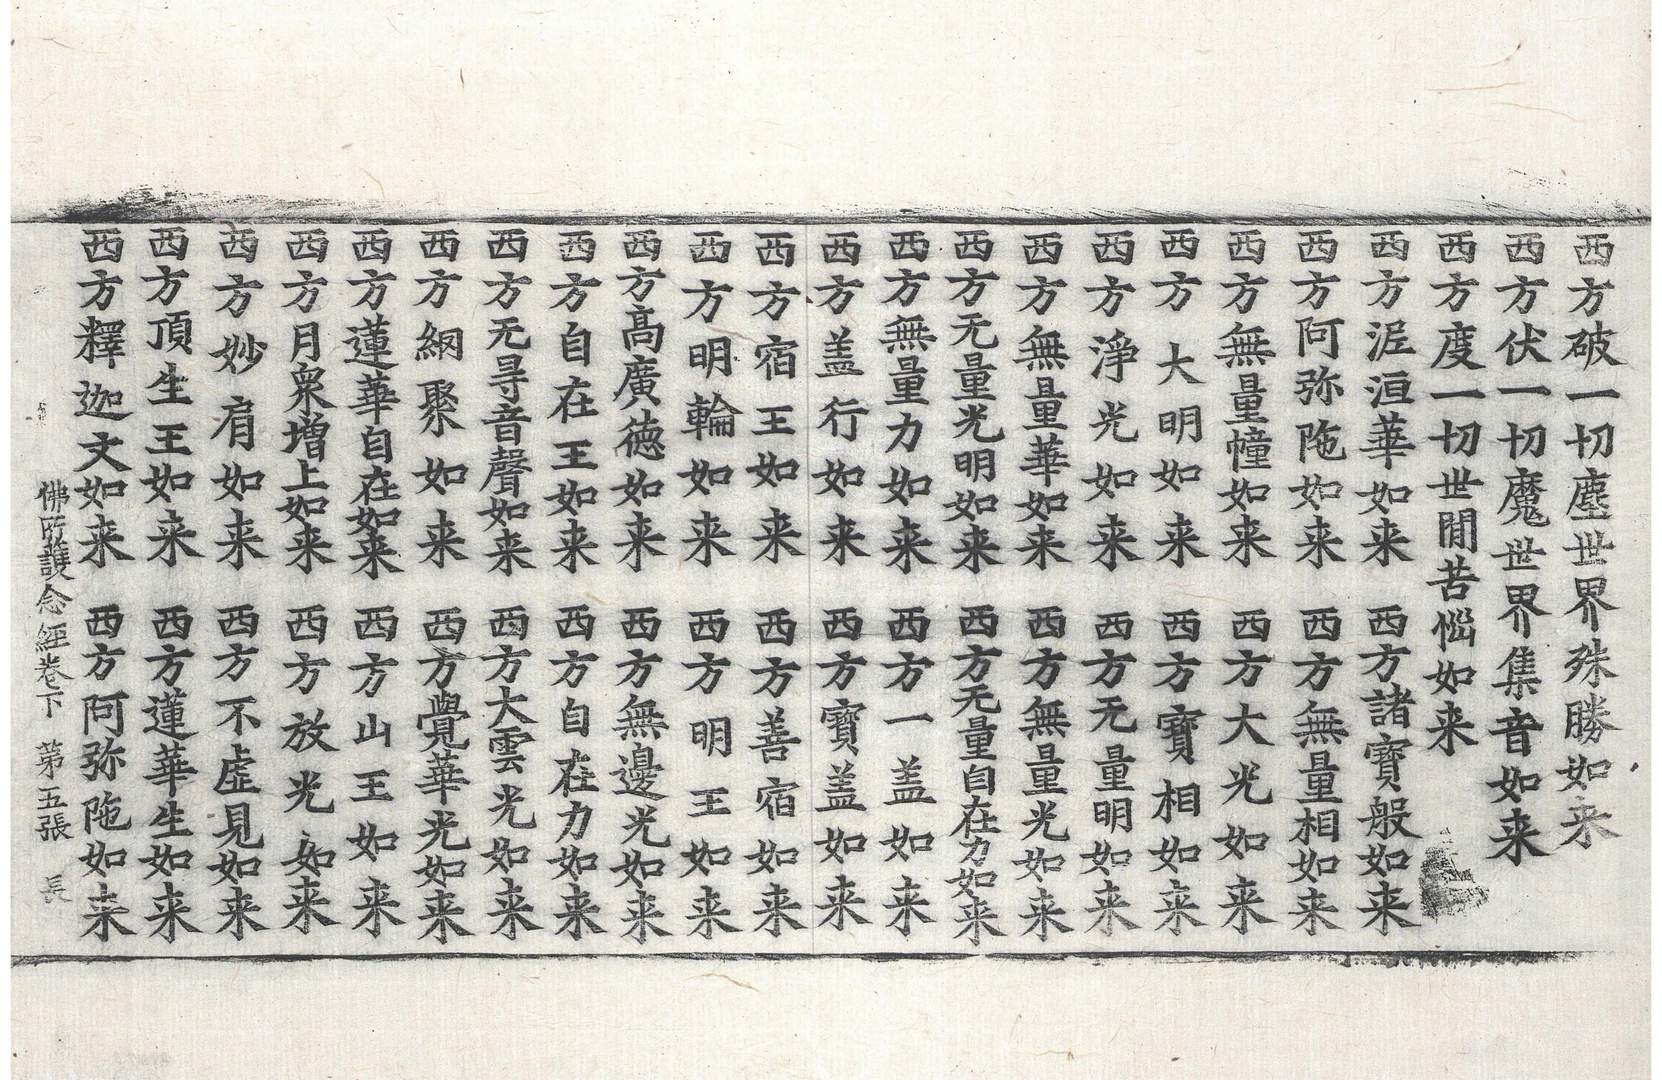 西方破一切塵世界殊勝如来
西方伏一切魔世界集音如来
西方度一切世間苦惱如来
西方泥洹華如来 西方諸寶般如来
西方阿弥陁如来 西方無量相如来
西方無量幢如来 西方大光如来
西方大明如来 西方寶相如来
西方淨光如来 西方无量明如来
西方無量華如来 西方無量光如来
西方无量光明如来 西方无量自在力如来
西方無量力如来 西方一盖如来
西方盖行如来 西方寶盖如来
西方宿王如来 西方善宿如来
西方明輪如来 西方明王如来
西方高廣德如来 西方無邊光如来
西方自在王如来 西方自在力如来
西方无㝵音聲如来 西方大雲光如来
西方網聚如来 西方覺華光如来
西方蓮華自在如来 西方山王如来
西方月衆增上如来 西方放光如来
西方妙肩如来 西方不虛見如来
西方頂生王如来 西方蓮華生如来
西方釋迦文如来 西方阿弥陁如来
佛所護念經卷下 第五張 長